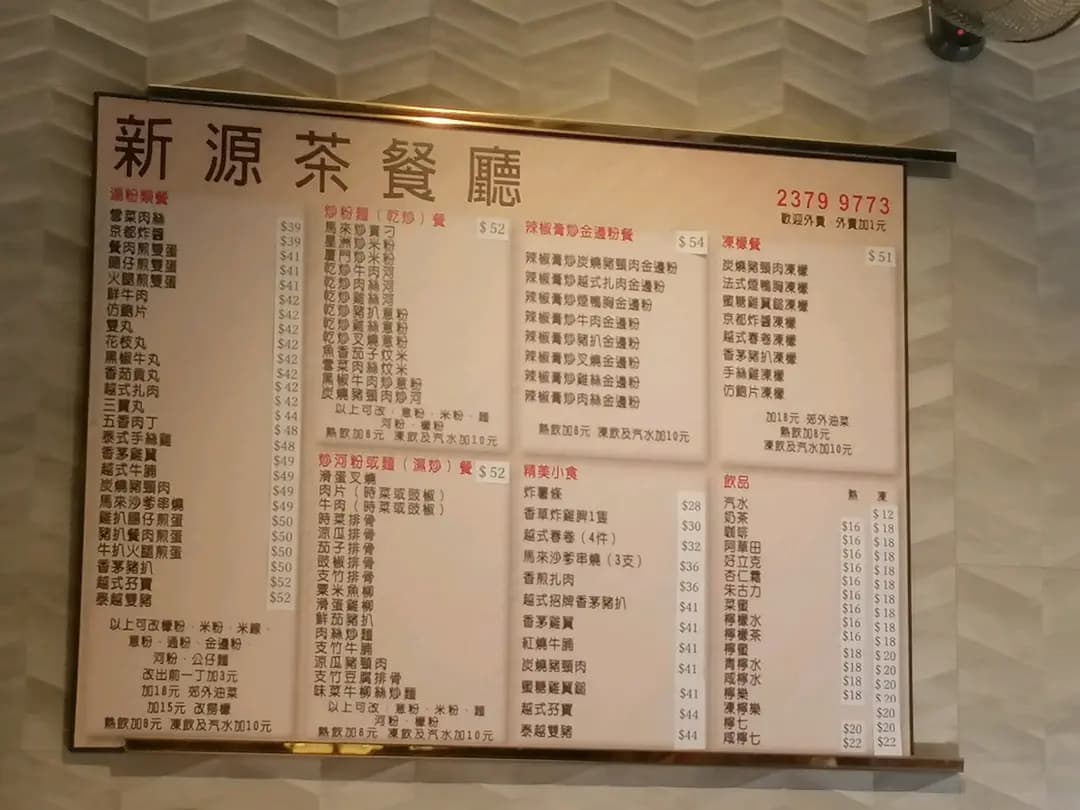 新源茶餐廳
2379 9773
歡迎外賣 外賣加1元
湯粉類餐
雪菜肉絲 $39
京都炸醬 $39
餐肉煎雙蛋 $41
腸仔煎雙蛋 $41
火腿煎雙蛋 $41
鮮牛肉 $42
仿鮑片 $42
雙丸 $42
花枝丸 $42
黑椒牛丸 $42
香茄貢丸 $42
越式扎肉 $42
三寶丸 $42
五香肉丁 $44
泰式手絲雞 $48
香茅雞翼 $48
越式牛腩 $49
炭燒豬頸肉 $49
馬來沙爹串燒 $49
雞扒腸仔煎蛋 $49
豬扒餐肉煎蛋 $50
牛扒火腿煎蛋 $50
香茅豬扒 $50
越式孖寶 $50
泰越雙豬 $52
$52
以上可改檬粉．米粉．米線．
意粉．通粉．金邊粉
河粉．公仔麵
改出前一丁加3元
加18元 郊外油菜
加15元 改撈檬
熱飲加8元 凍飲及汽水加10元
炒粉麵（乾炒）餐 $52
馬來炒貴刁
星洲炒米粉
廈門炒米粉
乾炒牛肉河
乾炒肉絲河
乾炒雞絲河
乾炒豬扒意粉
乾炒雞絲意粉
乾炒叉燒意粉
魚香茄子炆米
雪菜肉絲炆米
黑椒牛肉炒意粉
炭燒豬頸肉炒河
以上可改．意粉．米粉．麵
河粉．檬粉
熱飲加8元 凍飲及汽水加10元
炒河粉或麵（濕炒）餐 $52
滑蛋叉燒
肉片（時菜或豉椒）
牛肉（時菜或豉椒）
時菜排骨
涼瓜排骨
茄子排骨
豉椒排骨
支竹排骨
粟米魚柳
滑蛋雞柳
鮮茄豬扒
肉絲炒麵
支竹牛腩
涼瓜豬頸肉
支竹豆腐排骨
味菜牛柳絲炒麵
以上可改．意粉．米粉．麵
河粉．檬粉
熱飲加8元 凍飲及汽水加10元
辣椒膏炒金邊粉餐 $54
辣椒膏炒炭燒豬頸肉金邊粉
辣椒膏炒越式扎肉金邊粉
辣椒膏炒煙鴨胸金邊粉
辣椒膏炒牛肉金邊粉
辣椒膏炒豬扒金邊粉
辣椒膏炒叉燒金邊粉
辣椒膏炒雞絲金邊粉
辣椒膏炒肉絲金邊粉
熱飲加8元 凍飲及汽水加10元
精美小食
炸薯條 $28
香草炸雞脾1隻 $30
越式春卷（4件） $32
馬來沙爹串燒（3支） $36
香煎扎肉 $36
越式招牌香茅豬扒 $41
香茅雞翼 $41
紅燒牛腩 $41
炭燒豬頸肉 $41
蜜糖雞翼鎚 $41
越式孖寶 $44
泰越雙豬 $44
凍檬餐 $51
炭燒豬頸肉凍檬
法式煙鴨胸凍檬
蜜糖雞翼鎚凍檬
京都炸醬凍檬
越式春卷凍檬
香茅豬扒凍檬
手絲雞凍檬
仿鮑片凍檬
加18元 郊外油菜
熱飲加8元
凍飲及汽水加10元
飲品 熱 凍
汽水 $12
奶茶 $16 $18
咖啡 $16 $18
阿華田 $16 $18
好立克 $16 $18
杏仁霜 $16 $18
朱古力 $16 $18
菜蜜 $16 $18
檸檬水 $16 $18
檸檬茶 $16 $18
檸蜜 $18 $20
青檸水 $18 $20
咸檸水 $18 $20
檸樂 $18 $20
凍檸樂 $20
檸七 $20 $20
咸檸七 $22 $22